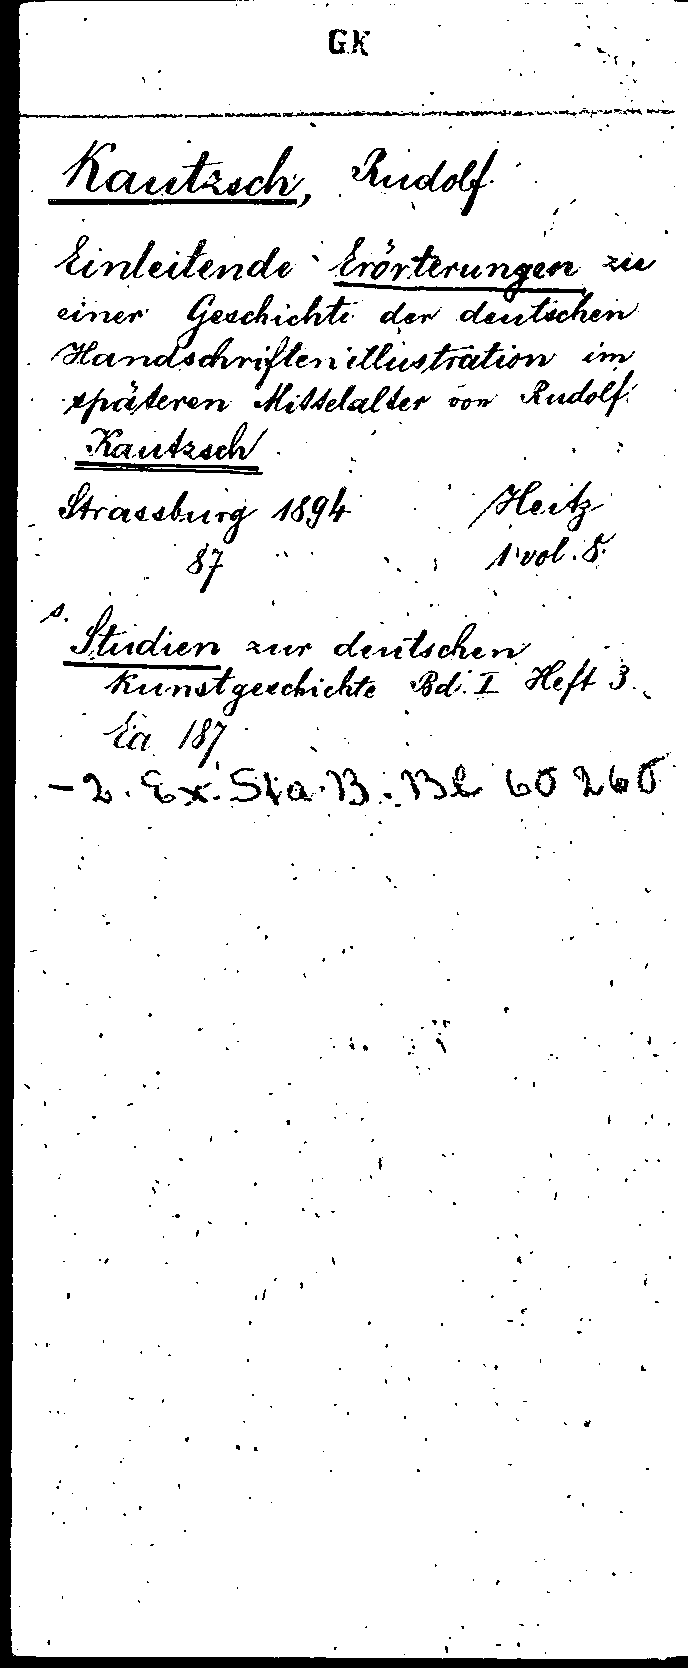 GK
Kautzsch, Rudolf
Einleitende Erörterungen zu
einer Geschichte der deutschen
Handschriftenillustration im
späteren Mittelalter von Rudolf
Kautzsch
Strassburg 1894 Heitz
87 1 vol. 8.
s.
Studien zur deutschen
Kunstgeschichte Bd. I Heft 3
Ea 187
- 2. Ex. Sta. B. Bl 60 260